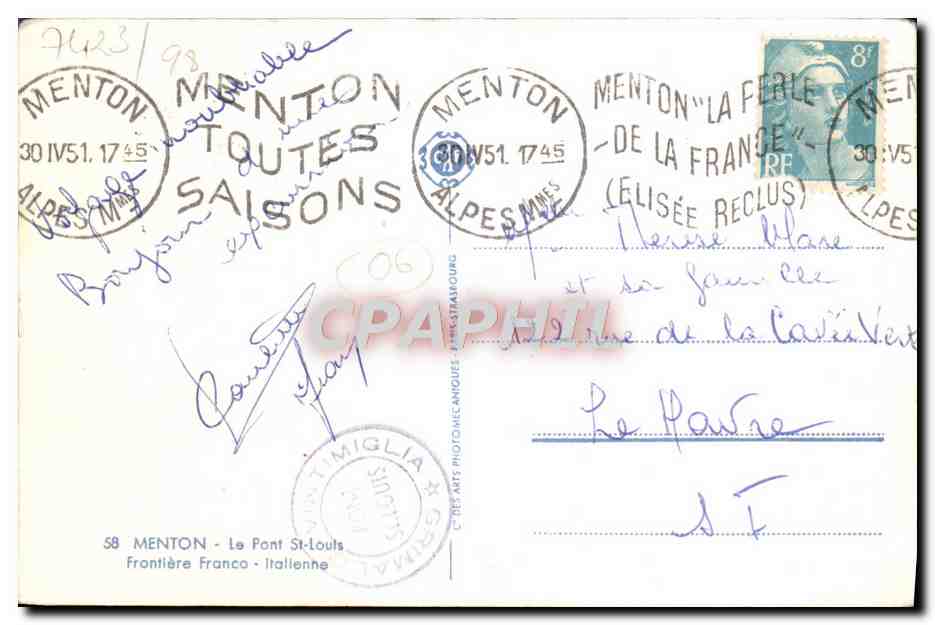 7423/98
MENTON
30 IV 51. 17 45
ALPES Mmes
MENTON
TOUTES
SAISONS
MENTON
30 IV 51. 17 45
ALPES Mmes
MENTON "LA PERLE
DE LA FRANCE"
(ELISÉE RECLUS)
MEN
30 IV 51
ALPES
8f
RF
Voyage inoubliable
Bonjour
06
CPAPHIL
Paulette
Jean
et sa famille
rue de la Cavée Verte
Le Havre
S I
VINTIMIGLIA ★ GRIMAL
PONT
ST LOUIS
58 MENTON - Le Pont St-Louis
Frontière Franco - Italienne
Cie DES ARTS PHOTOMECANIQUES - PARIS-STRASBOURG